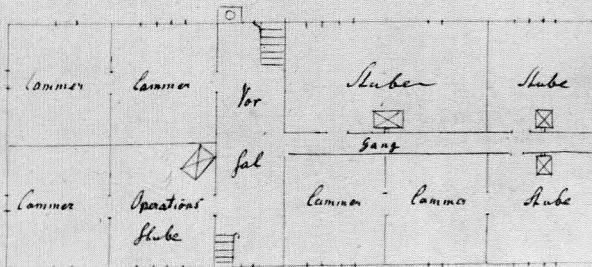 Cammer
Cammer
Vor
Stuben
Stube
Gang
Sal
Cammer
Operations
Stube
Cammer
Cammer
Stube